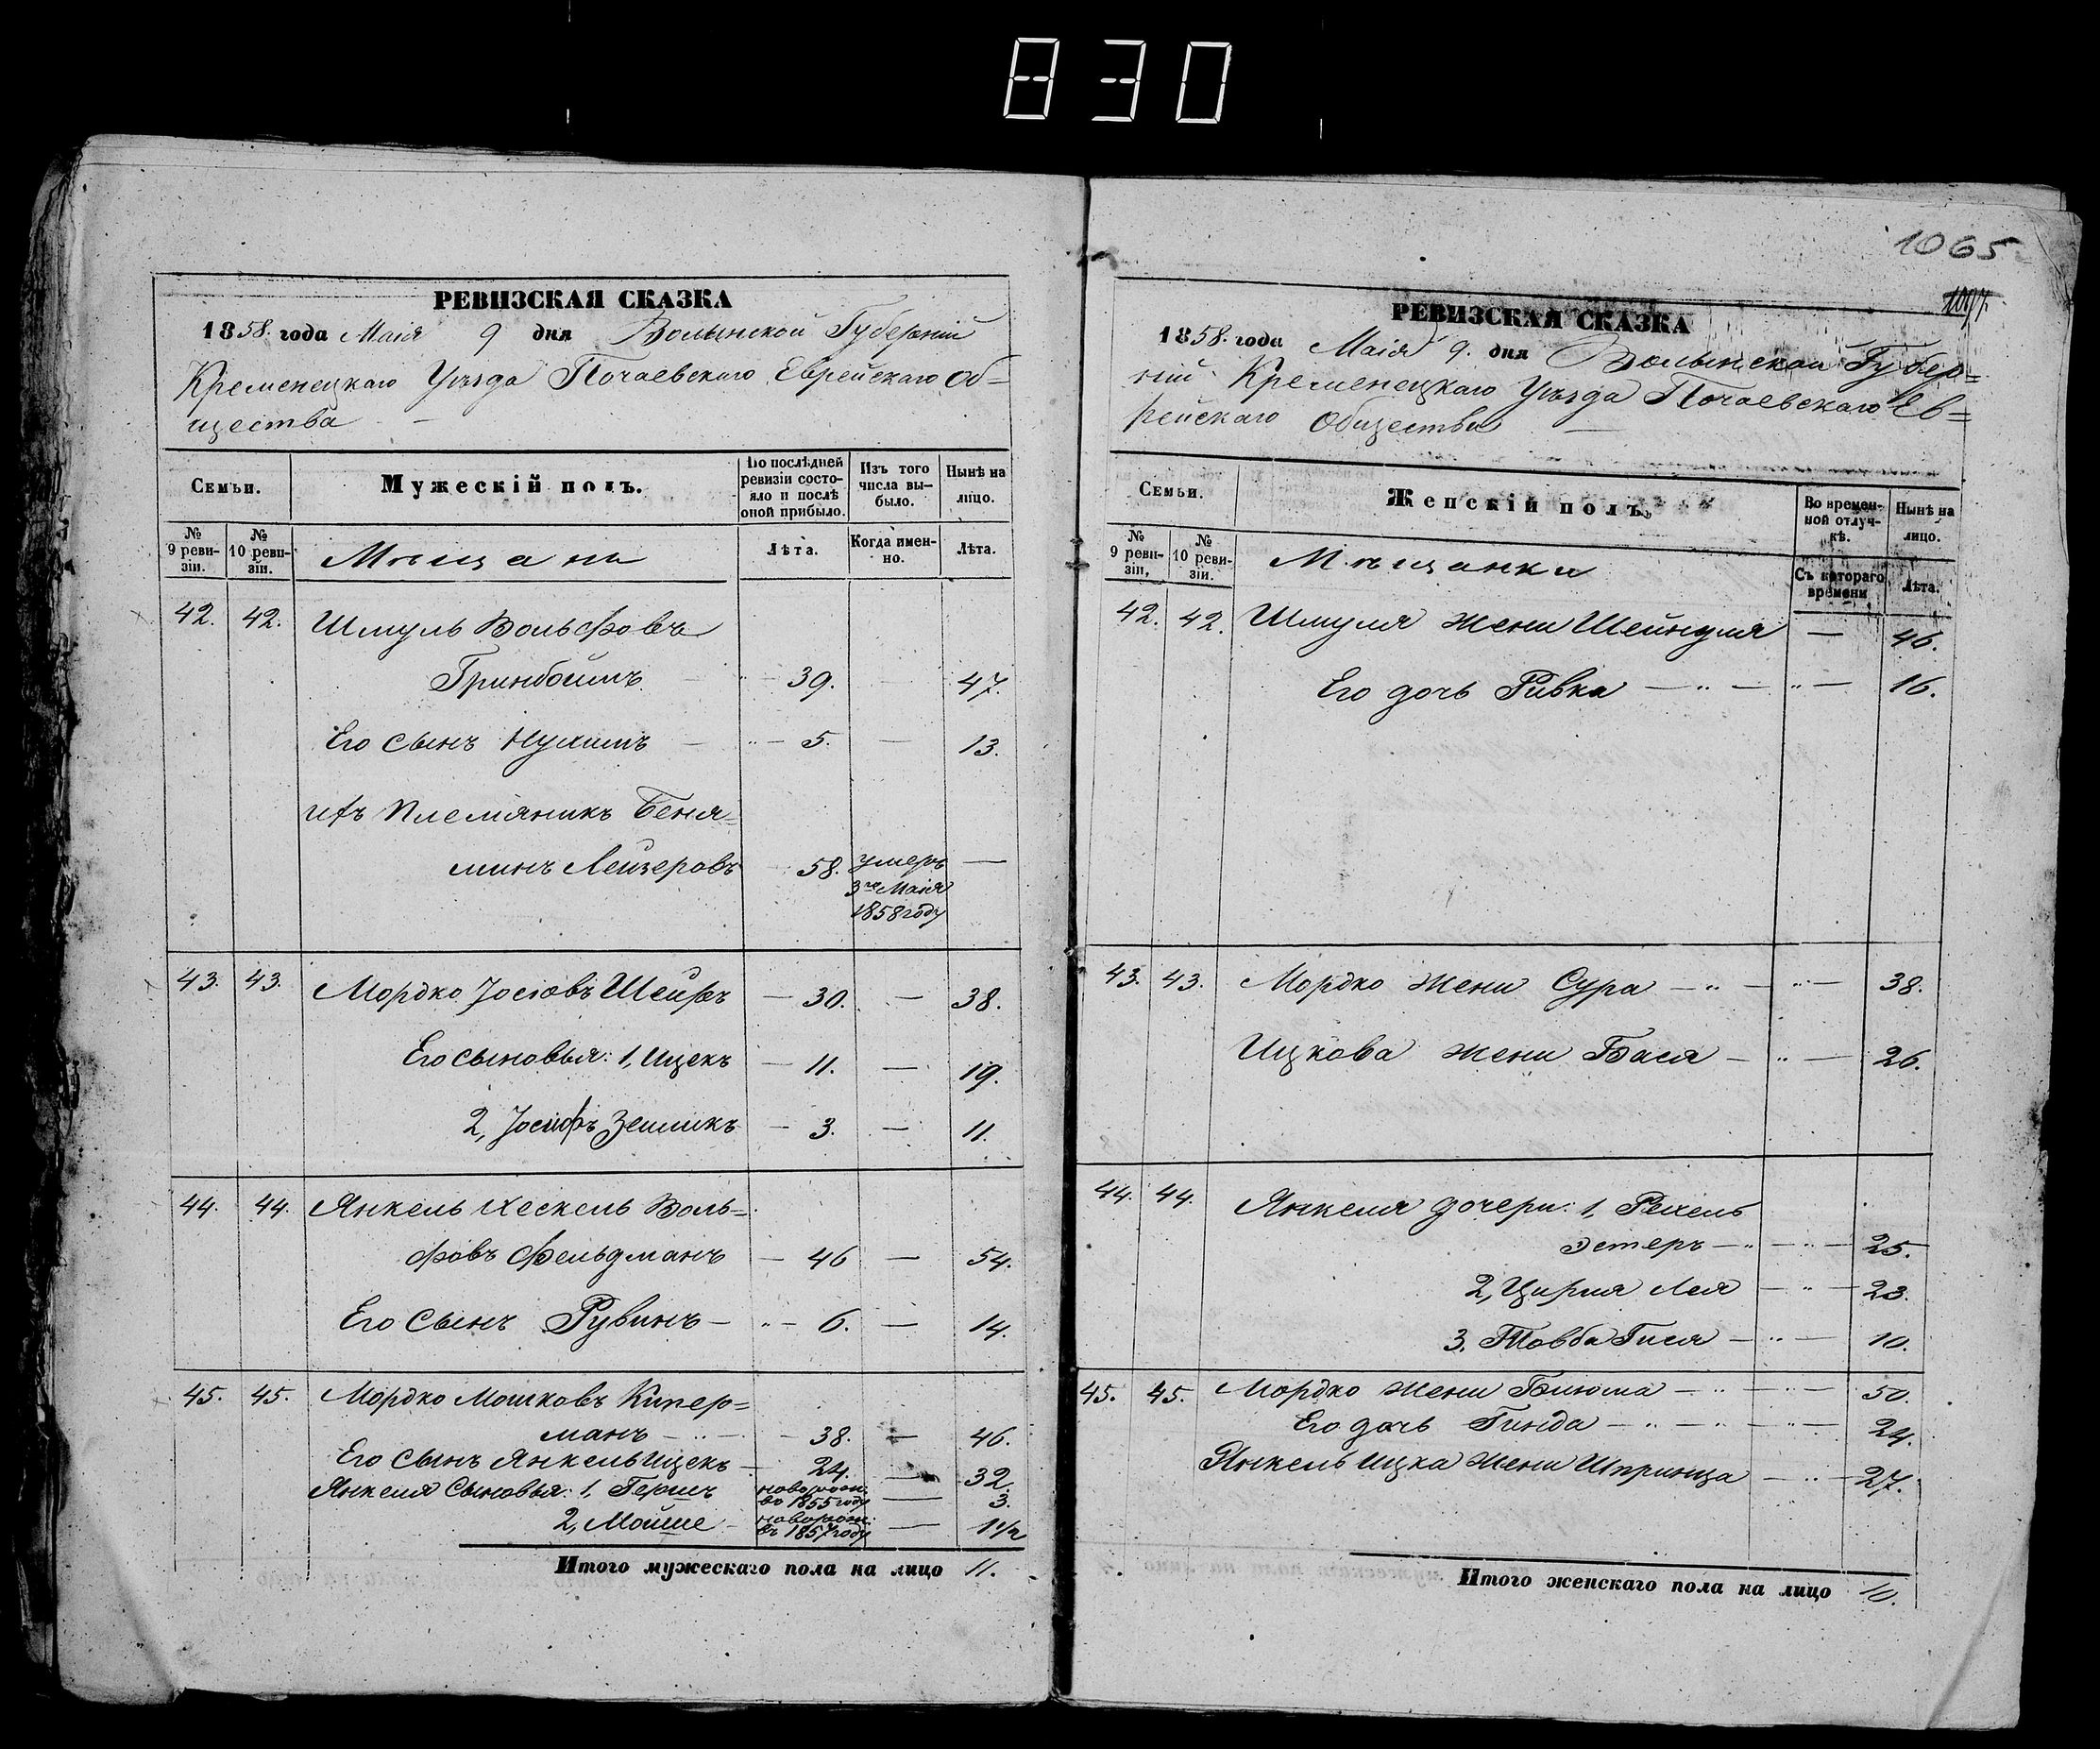 830
1065
РЕВИЗСКАЯ СКАЗКА
1858. года Маія 9 дня Волынской Губерніи
Кременецкаго Уѣзда Почаевскаго Еврейскаго Об=
щества
Семьи.
Мужескій полъ.
Во послѣдней ревизіи состояло и послѣ оной прибыло.
Изъ того числа выбыло.
Нынѣ на лицо.
№ 9 ревизіи.
№ 10 ревизіи.
Мѣщане
Лѣта.
Когда именно.
Лѣта.
42. 42. Шмуль Вольфовъ
Гринбоимъ — 39. — 47.
Его сынъ Нухимъ — 5. — 13.
Племяникъ Беня=
минъ Лейзеровъ 58. умеръ 3го Маія 1858 году —
43. 43. Мордко Іосіовъ Шейръ — 30. — 38.
Его сыновья: 1, Ицекъ — 11. — 19.
2, Іосифъ Зейликъ — 3. — 11.
44. 44. Янкель Хескель Воль=
фовъ Фельдманъ — 46 — 54.
Его сынъ Рувинъ — 6. — 14.
45. 45. Мордко Мошковъ Кипер=
манъ — 38. — 46.
Его сынъ Янкель Ицекъ — 24. — 32.
Янкеля Сыновья: 1, Гершъ новорож: во 1855 году — 3.
2, Мойше новорож: въ 1857 году — 1 1/2
Итого мужескаго пола на лицо 11.
РЕВИЗСКАЯ СКАЗКА
1858. года Маія 9. дня Волынской Губер=
ніи Кременецкаго Уѣзда Почаевскаго Ев=
рейскаго Общества —
Семьи.
Женскій полъ.
Во временной отлучкѣ.
Нынѣ на лицо.
№ 9 ревизіи.
№ 10 ревизіи.
Мѣщанки
Съ котораго времени
Лѣта.
42. 42. Шмуля жена Шейндля — 46.
Его дочь Ривка — 16.
43. 43. Мордко жена Сура — 38.
Ицкова жена Бася — 26.
44. 44. Янкеля дочери: 1, Рехель
Эстеръ — 25.
2, Цирля Лея — 23.
3. Товба Гися — 10.
45. 45. Мордко жена Блюма — 50.
Его дочь Гинда — 24.
Янкель Ицка жена Шпринца — 27.
Итого женскаго пола на лицо 10.